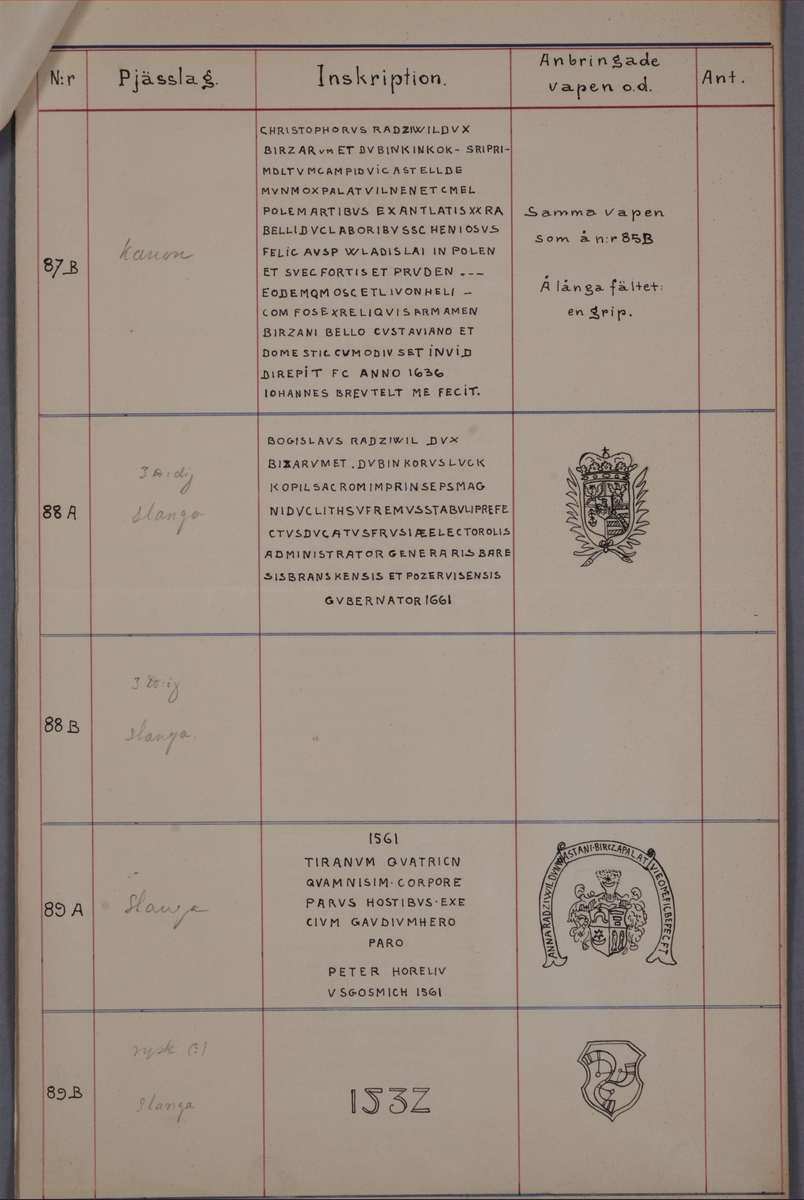 N:r Pjässlag. Inskription. Anbringade vapen o.d. Ant.
87B
Kanon
CHRISTOPHORVS RADZIWILDVX
BIRZARVM ET DVBINKINKOK- SRIPRI-
MDLTVMCAMPIDVICASTELLDE
MVNMOXPALATVILNENETCMEL
POLEMARTIBVS EXANTLATISXXRA
BELLIDVCLABORIBVSSCHENIOSVS
FELIC AVSP WLADISLAI IN POLEN
ET SVECFORTISET PRVDEN ---
EODEMQMOSCETLIVONHELI -
COM FOSEXRELIQVISARMAMEN
BIRZANI BELLO CVSTAVIANO ET
DOMESTICCVMODIVSETINVID
DIREPIT FC ANNO 1636
IOHANNES BREVTELT ME FECIT.
Samma vapen
som å n:r 85B
Å långa fältet:
en grip.
88 A
slanga
BOGISLAVS RADZIWIL DVX
BIZARVMET.DVBINKORVSLVCK
KOPILSACROMIMPRINSEPSMAG
NIDVCLITHSVFREMVSSTABVLIPREFE
CTVSDVCATVSFRVSIÆELECTOROLIS
ADMINISTRATOR GENERARISBARE
SISBRANSKENSIS ET POZERVISENSIS
GVBERNATOR 1661
88 B
Slanga.
89 A
Slanga
1561
TIRANVM QVATRICN
QVAMNISIM·CORPORE
PARVS HOSTIBVS·EXE
CIVM GAVDIVMHERO
PARO
PETER HORELIV
VSGOSMICH 1561
89B
rysk (?)
Slanga
1532